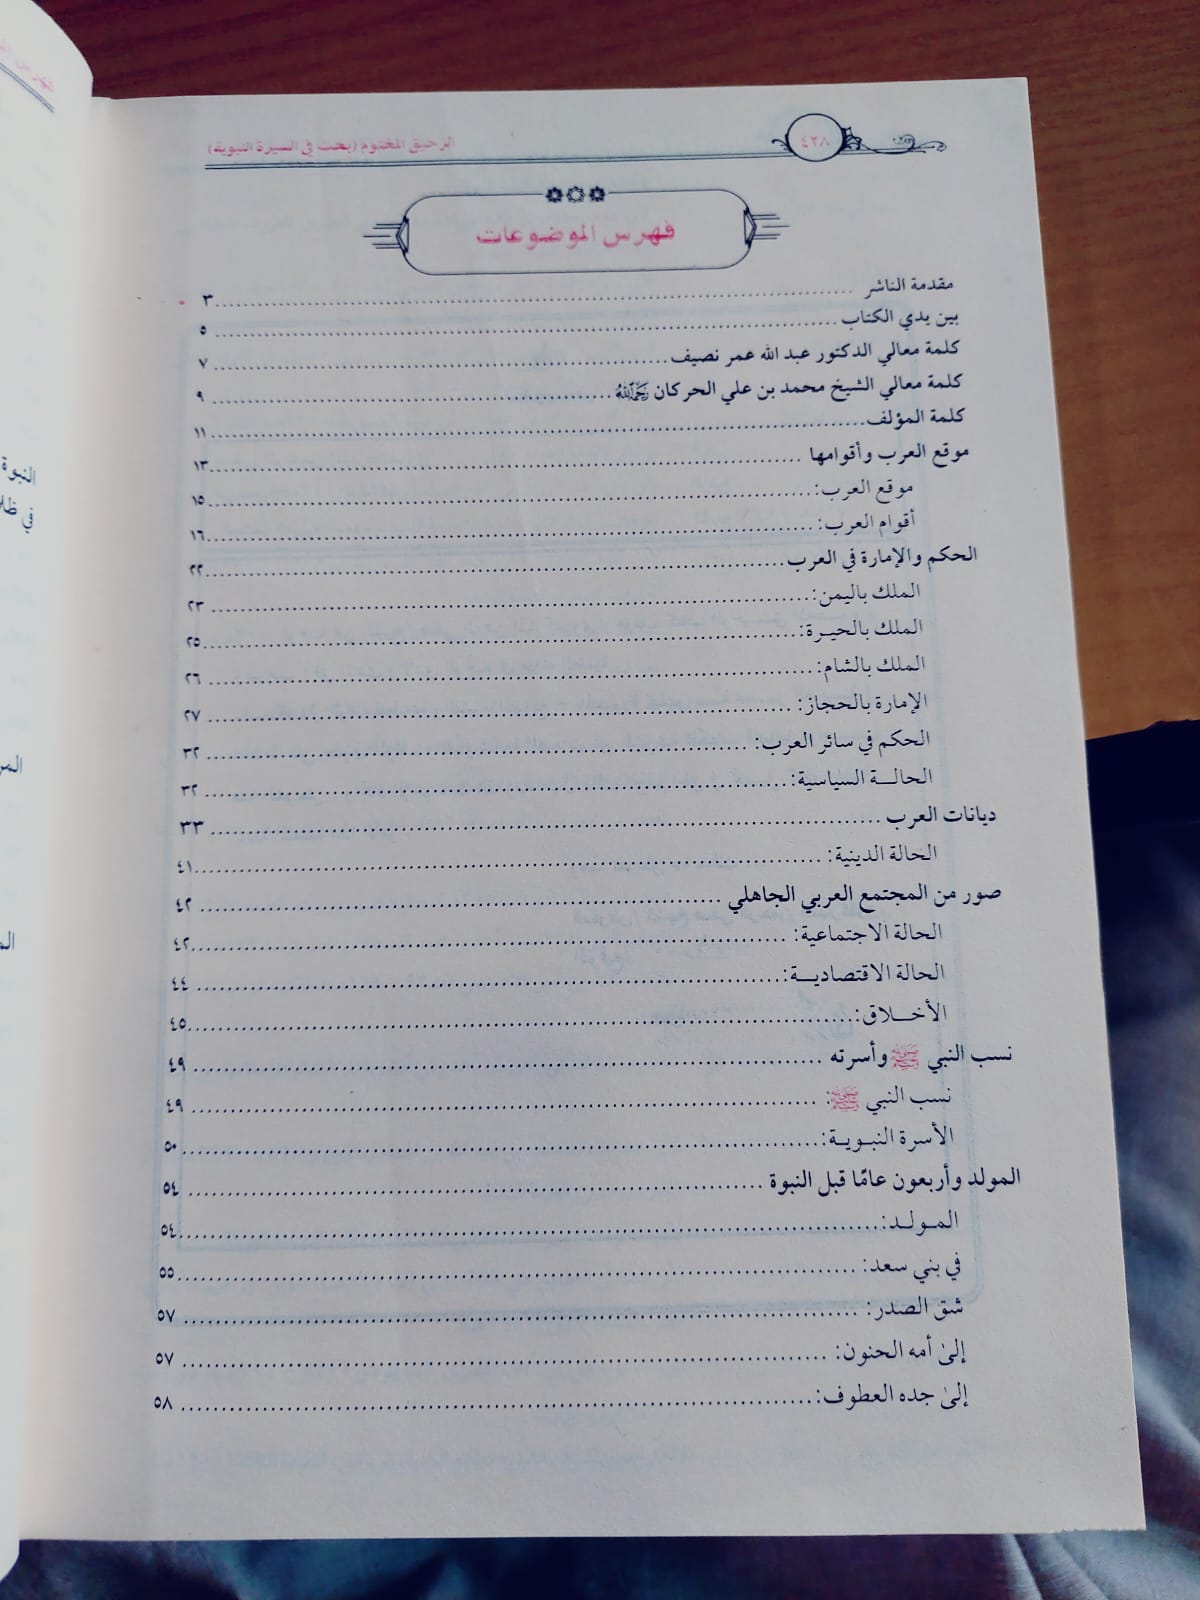 الرحيق المختوم (بحث في السيرة النبوية)
٤٢٨
فهرس الموضوعات
مقدمة الناشر ........ ٣
بين يدي الكتاب ........ ٥
كلمة معالي الدكتور عبد الله عمر نصيف ........ ٧
كلمة معالي الشيخ محمد بن علي الحركان رحمه الله ........ ٩
كلمة المؤلف ........ ١١
موقع العرب وأقوامها ........ ١٣
موقع العرب: ........ ١٥
أقوام العرب: ........ ١٦
الحكم والإمارة في العرب ........ ٢٢
الملك باليمن: ........ ٢٣
الملك بالحيـرة: ........ ٢٥
الملك بالشام: ........ ٢٦
الإمارة بالحجاز: ........ ٢٧
الحكم في سائر العرب: ........ ٣٢
الحالـــة السياسية: ........ ٣٢
ديانات العرب ........ ٣٣
الحالة الدينية: ........ ٤١
صور من المجتمع العربي الجاهلي ........ ٤٢
الحالة الاجتماعية: ........ ٤٢
الحالة الاقتصاديـــة: ........ ٤٤
الأخـــلاق: ........ ٤٥
نسب النبي ﷺ وأسرته ........ ٤٩
نسب النبي ﷺ: ........ ٤٩
الأسرة النبـويـة: ........ ٥٠
المولد وأربعون عامًا قبل النبوة ........ ٥٤
المـولـد: ........ ٥٤
في بني سعد: ........ ٥٥
شق الصدر: ........ ٥٧
إلىٰ أمه الحنون: ........ ٥٧
إلىٰ جده العطوف: ........ ٥٨
النبوة
في